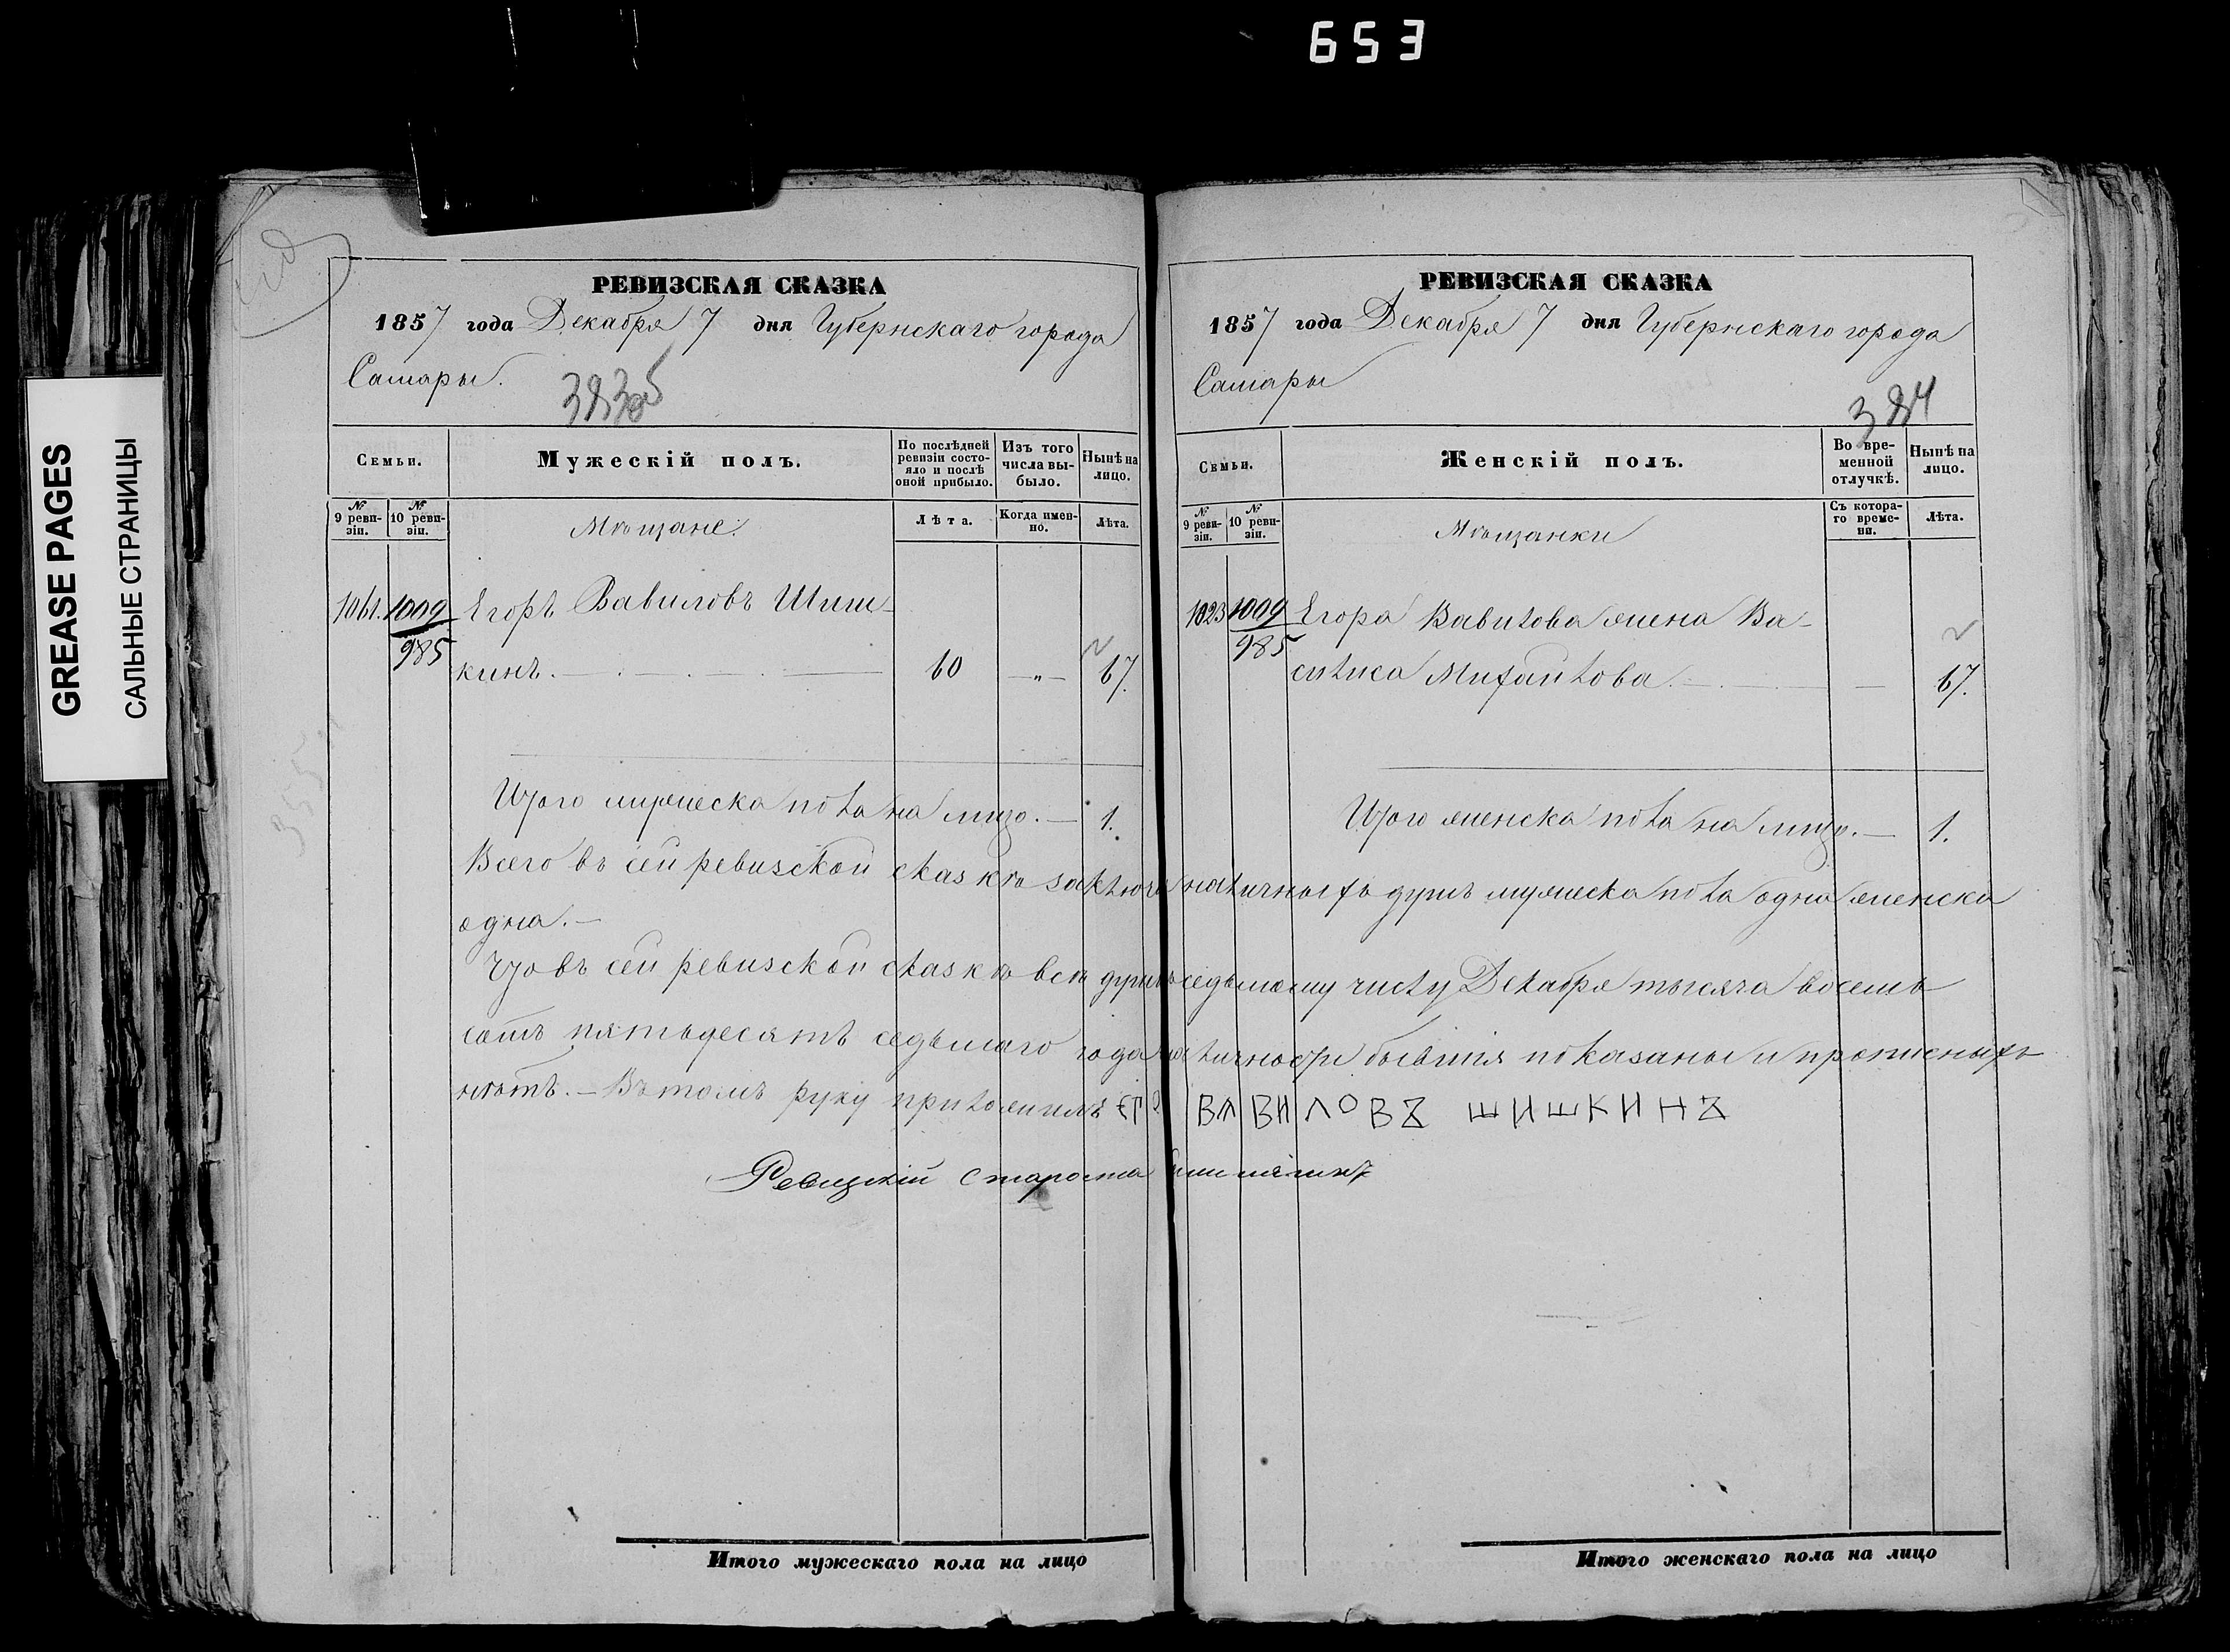 653
GREASE PAGES
САЛЬНЫЕ СТРАНИЦЫ
РЕВИЗСКАЯ СКАЗКА
1857 года Декабря 7 дня Губернскаго города
Самары.
Семьи.
Мужескій полъ.
По послѣдней ревизіи состояло и послѣ оной прибыло.
Изъ того числа выбыло.
Нынѣ на лицо.
№ 9 ревизіи.
№ 10 ревизіи.
Мѣщане.
Лѣта.
Когда именно.
Лѣта.
1061. 1009 Егоръ Вавиловъ Шиш-
985 кинъ. 60 „ 67.
Итого мужеска пола на лицо. — 1.
РЕВИЗСКАЯ СКАЗКА
1857 года Декабря 7 дня Губернскаго города
Самары
384
Семьи.
Женскій полъ.
Во временной отлучкѣ.
Нынѣ на лицо.
№ 9 ревизіи.
№ 10 ревизіи.
Мѣщанки
Съ котораго времени.
Лѣта.
1023 1009 Егора Вавилова жена Ва-
985 силиса Михайлова. — 67.
Итого женска пола на лицо. — 1.
Всего въ сей ревизской сказкѣ наличныхъ душъ мужеска пола одна женска
одна. —
Что въ сей ревизской сказкѣ всѣ душъ седьмому числу Декабря тысяча восемь
сотъ пятьдесятъ седьмаго года наличности бывшія показаны и прописныхъ
нѣтъ. — Въ томъ руку приложилъ ВАВИЛОВЪ ШИШКИНЪ
Ревизскій староста
Итого мужескаго пола на лицо
Итого женскаго пола на лицо